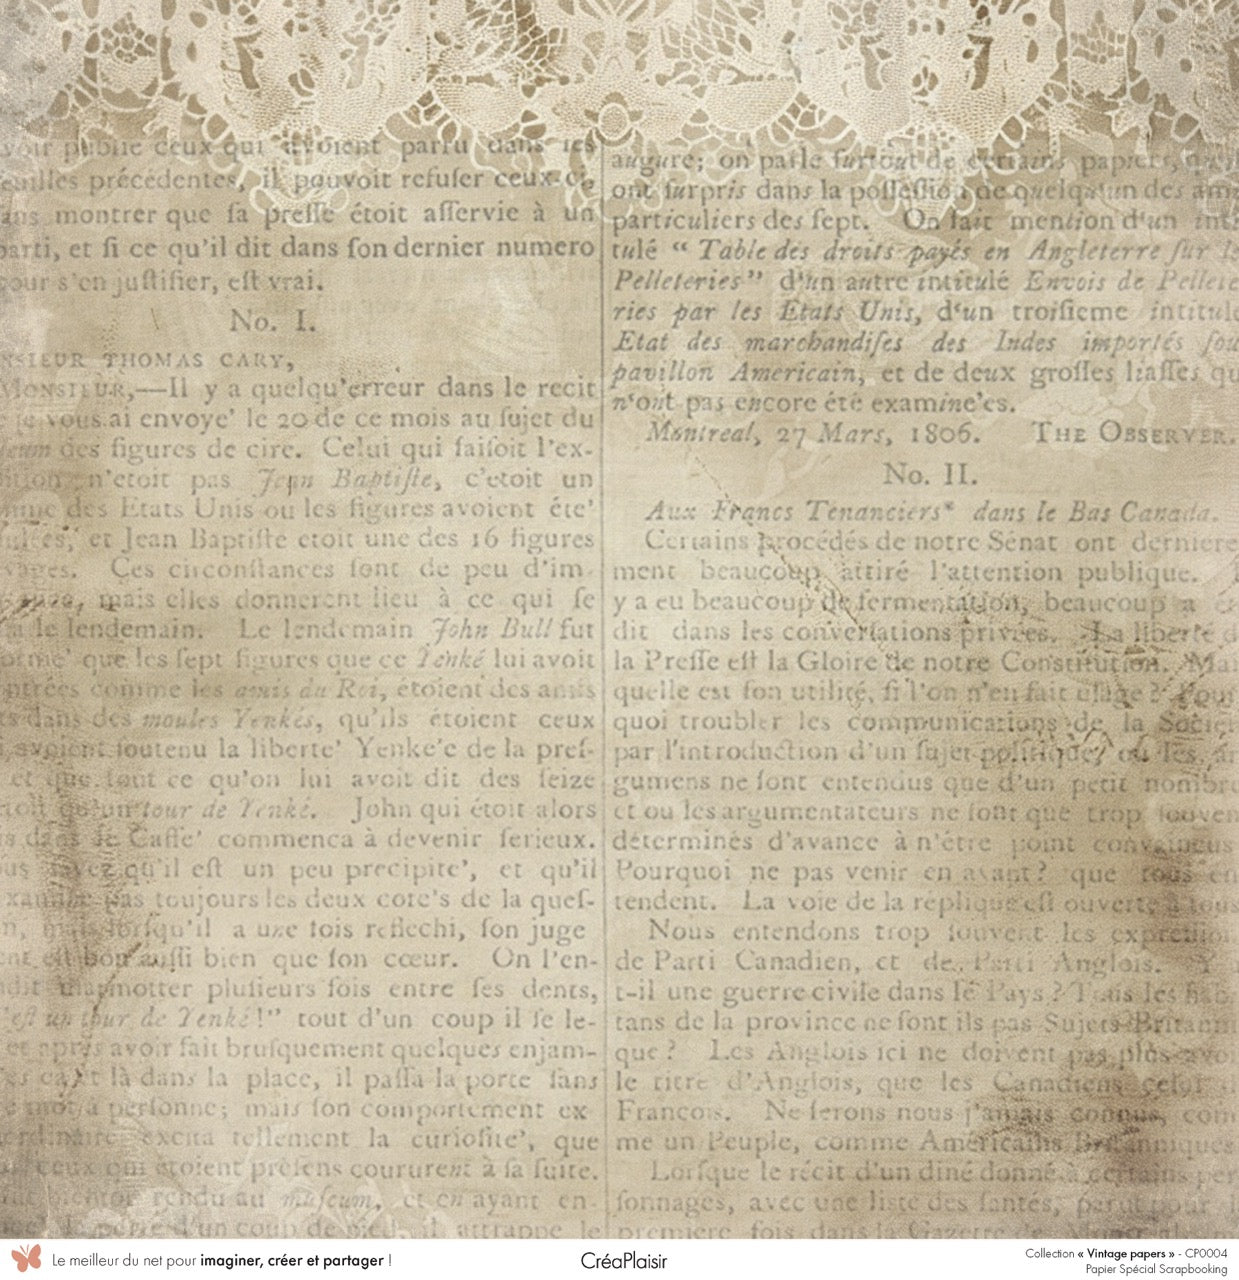 voir publié ceux qui avoient paru dans les
feuilles précédentes, il pouvoit refuſer ceux-ci,
ſans montrer que ſa preſſe étoit aſſervie à un
parti, et ſi ce qu'il dit dans ſon dernier numero
pour s'en juſtifier, eſt vrai.
No. I.
NSIEUR THOMAS CARY,
MONSIEUR,—Il y a quelqu'erreur dans le recit
je vous ai envoye' le 20 de ce mois au ſujet du
des figures de cire. Celui qui faiſoit l'ex-
n'etoit pas Jean Baptiſte, c'etoit un
des Etats Unis ou les figures avoient éte'
et Jean Baptiſte etoit une des 16 figures
Ces circonſtances ſont de peu d'im-
mais elles donnerent lieu à ce qui ſe
le lendemain. Le lendemain John Bull fut
que les ſept figures que ce Yenké lui avoit
comme les amis du Roi, étoient des amis
dans des moules Yenkés, qu'ils étoient ceux
avoient ſoutenu la liberte' Yenke'e de la preſ-
et que tout ce qu'on lui avoit dit des ſeize
qu'un tour de Yenké. John qui étoit alors
dans le Caffe' commenca à devenir ſerieux.
ſavez qu'il eſt un peu precipite', et qu'il
pas toujours les deux cote's de la queſ-
mais lorſqu'il a une fois reflechi, ſon juge
eſt bon auſſi bien que ſon cœur. On l'en-
marmotter pluſieurs fois entre ſes dents,
c'eſt un tour de Yenké!" tout d'un coup il ſe le-
et après avoir fait bruſquement quelques enjam-
là dans la place, il paſſa la porte ſans
mot à perſonne; mais ſon comportement ex
excita tellement la curioſite', que
ceux qui étoient préſens coururent à ſa ſuite.
bientot rendu au muſeum, et en ayant en-
la porte d'un coup de pied, il attrappe le
augure; on parle ſurtout de certains papiers,
ont ſurpris dans la poſſeſſion de quelqu'un des
particuliers des ſept. On fait mention d'un
tulé " Table des droits payés en Angleterre ſur
Pelleteries" d'un autre intitulé Envois de Pellete
ries par les Etats Unis, d'un troiſieme intitulé
Etat des marchandiſes des Indes importés ſou
pavillon Americain, et de deux groſſes liaſſes qu
n'ont pas encore éte examine'es.
Montreal, 27 Mars, 1806. THE OBSERVER.
No. II.
Aux Francs Tenanciers* dans le Bas Canada.
Certains procédés de notre Sénat ont derniere
ment beaucoup attiré l'attention publique.
y a eu beaucoup de fermentation, beaucoup a
dit dans les converſations privées. La liberté d
la Preſſe eſt la Gloire de notre Conſtitution. Mai
quelle est ſon utilité, ſi l'on n'en fait uſage? Pour
quoi troubler les communications de la Sociét
par l'introduction d'un ſujet politique, ou les ar
gumens ne ſont entendus que d'un petit nombre
et ou les argumentateurs ne ſont que trop ſouven
déterminés d'avance à n'étre point convaincus
Pourquoi ne pas venir en avant? que tous en
tendent. La voie de la réplique eſt ouverte à tous
Nous entendons trop ſouvent les expreſſion
de Parti Canadien, et de Parti Anglois. Y
t-il une guerre civile dans le Pays? Tous les hab
tans de la province ne ſont ils pas Sujets Britann
que? Les Anglois ici ne doivent pas plus avoi
le titre d'Anglois, que les Canadiens celui
Francois. Ne ſerons nous j'amais connus, com
me un Peuple, comme Américains Britanniques
Lorſque le récit d'un diné donné à certains per
ſonnages, avec une liste des ſantés, parut pour
premiere fois dans la Gazette
Le meilleur du net pour imaginer, créer et partager !
CréaPlaisir
Collection « Vintage papers » - CP0004
Papier Spécial Scrapbooking